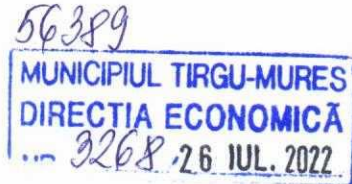 56389
MUNICIPIUL TIRGU-MURES
DIRECTIA ECONOMICĂ
... 3268 26 IUL. 2022